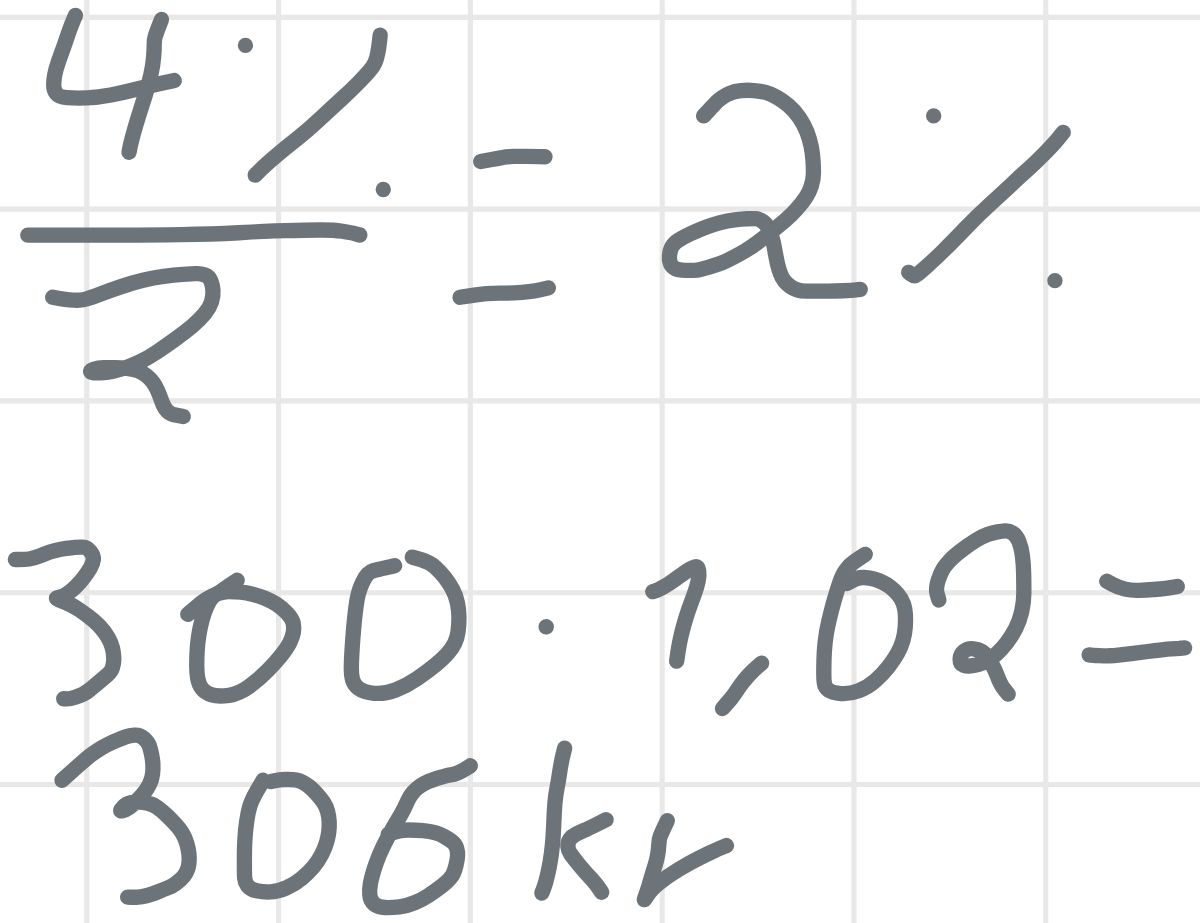 4% / 2 = 2%
300 · 1,02 =
306 kr